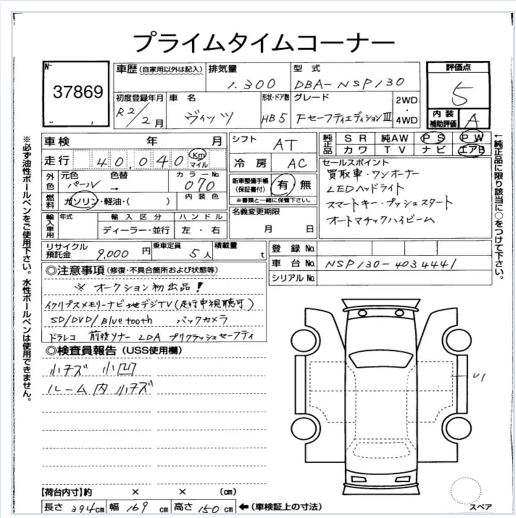 プライムタイムコーナー
No 37869
車歴 (自家用以外は記入) 排気量 型式 評価点
1.300 DBA-NSP130 5
初度登録年月 車名 形状・ドア数 グレード 2WD・4WD 内装補助評価 A
R2/2月 ヴィッツ HB5 FセーフティエディションⅢ
車検 年 月 シフト AT 純正品 SR 純AW PS PW
カワ TV ナビ エアB
走行 40,040 Km マイル 冷房 AC
セールスポイント
外色 元色 色替 カラーNo.
パール → 070
燃料 ガソリン・軽油・( ) 内装色
新車整備手帳(保証書付) 有 無
※書類と一緒に保管下さい。
買取車・ワンオーナー
LEDヘッドライト
スマートキー・プッシュスタート
オートマチックハイビーム
輸入車用 年式 輸入区分 ハンドル
ディーラー・並行 左・右
名義変更期限
月 日
リサイクル預託金 9,000円 乗車定員 5人 積載量 t
登録No.
車台No. NSP130-4034441
シリアルNo.
◎注意事項 (修復・不具合箇所および状態等)
※オークション初出品!
イクリプスメモリーナビ地デジTV(走行中視聴可)
SD/DVD/Bluetooth バックカメラ
ドラレコ 前後ソナー LDA プリクラッシュセーフティ
◎検査員報告 (USS使用欄)
小キズ 小凹
ルーム内 小キズ
U1
【荷台内寸】約 × × (cm)
長さ 394cm 幅 169cm 高さ 150cm ←(車検証上の寸法)
スペア
※必ず油性ボールペンをご使用下さい。水性ボールペンは使用できません。
←純正品に限り該当に○をつけて下さい。